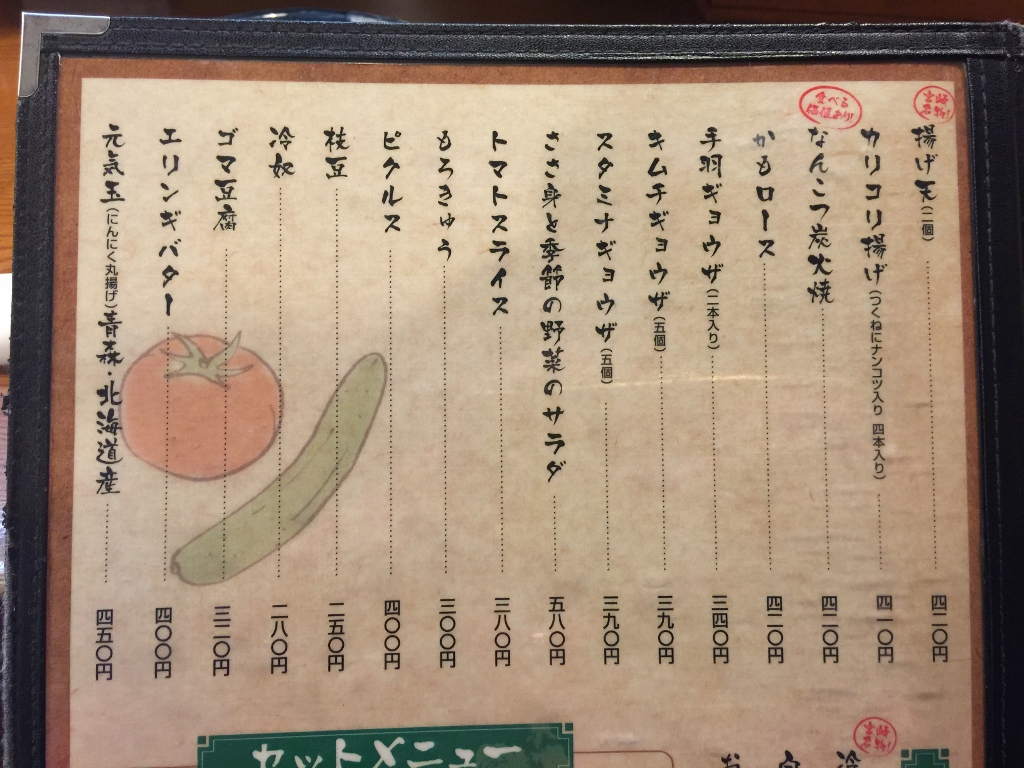 宮崎名物!
揚げ天(二個) 四二〇円
カリコリ揚げ(つくねにナンコツ入り 四本入り) 四一〇円
食べる価値あり!
なんこつ炭火焼 四二〇円
かもロース 四二〇円
手羽ギョウザ(二本入り) 三四〇円
キムチギョウザ(五個) 三九〇円
スタミナギョウザ(五個) 三九〇円
ささ身と季節の野菜のサラダ 五八〇円
トマトスライス 三八〇円
もろきゅう 三〇〇円
ピクルス 四〇〇円
枝豆 二五〇円
冷奴 二八〇円
ゴマ豆腐 三二〇円
エリンギバター 四〇〇円
元気玉(にんにく丸揚げ)青森・北海道産 四五〇円
宮崎名物!
セットメニュー